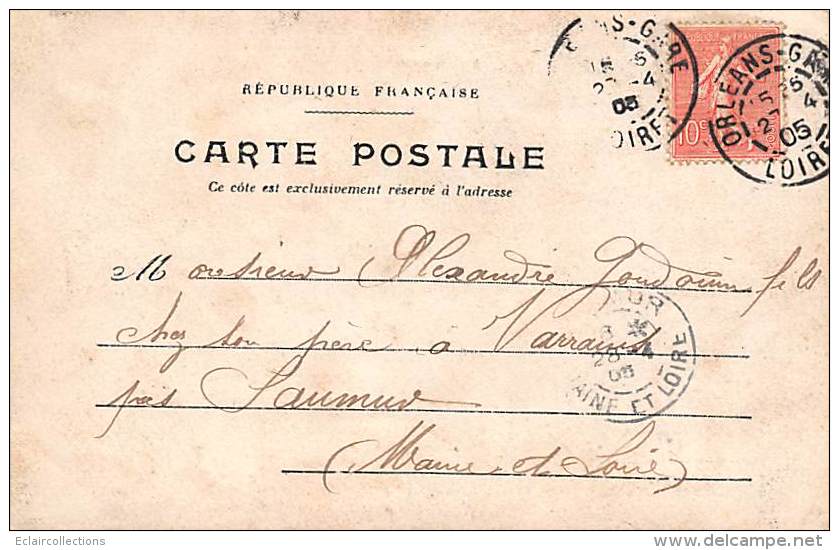 RÉPUBLIQUE FRANÇAISE
CARTE POSTALE
Ce côte est exclusivement réservé à l'adresse
ORLEANS-GA
25
4
05
LOIRE
NS-GARE
05
LOIRE
10
Monsieur Alexandre Goudouin fils
chez son père à Varrains
près Saumur
(Maine et Loire)
UR
28 4
05
AINE ET LOIRE
Eclaircollections
www.delcampe.net